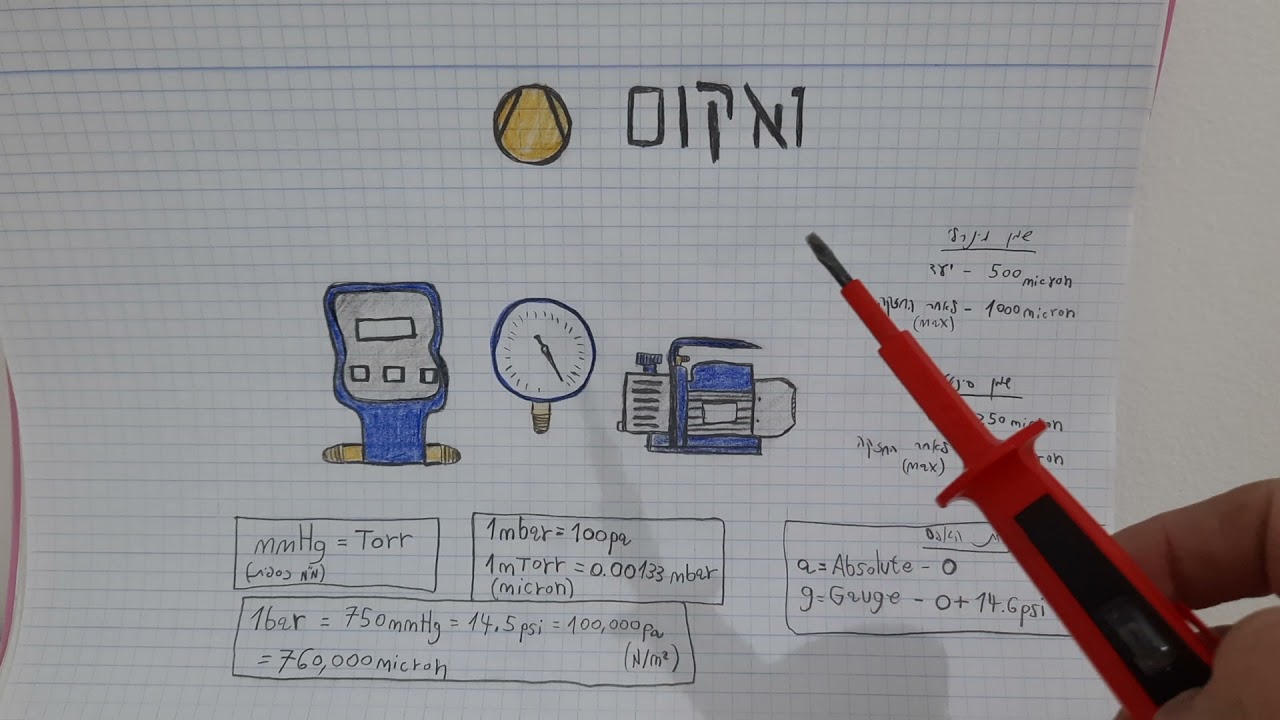 ואקום
שמן מינרלי
יעד - 500 micron
לאחר החזקה - 1000 micron
(max)
שמן
250 micron
לאחר החזקה
(max)
mmHg = Torr
(מ"מ כספית)
1mbar = 100pa
1mTorr = 0.00133 mbar
(micron)
1bar = 750mmHg = 14.5psi = 100,000pa
= 760,000micron
(N/m²)
a = Absolute - 0
g = Gauge - 0 + 14.6psi